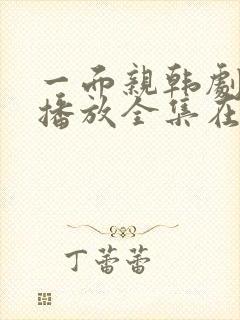 一而親韩劇
播放全集在
丁蕾蕾